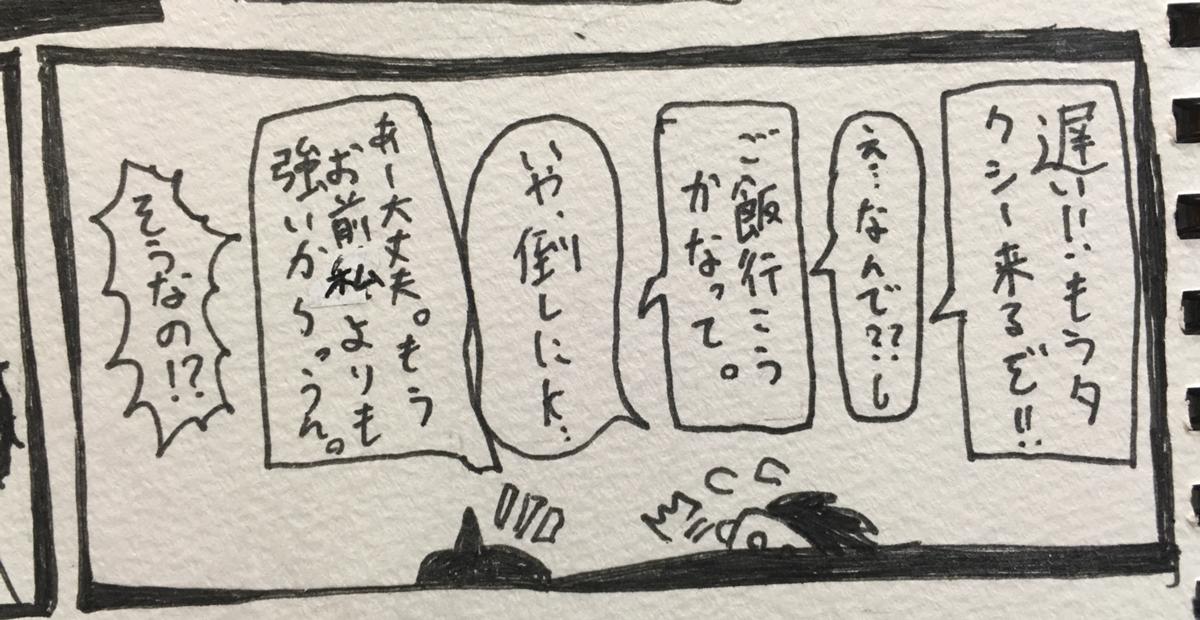 遅い!!もうタ
クシー来るぞ!!
え…なんで??し
ご飯行こう
かなって。
いや、倒しにに…
あー大丈夫。もう
お前私よりも
強いからっうん。
そうなの!?